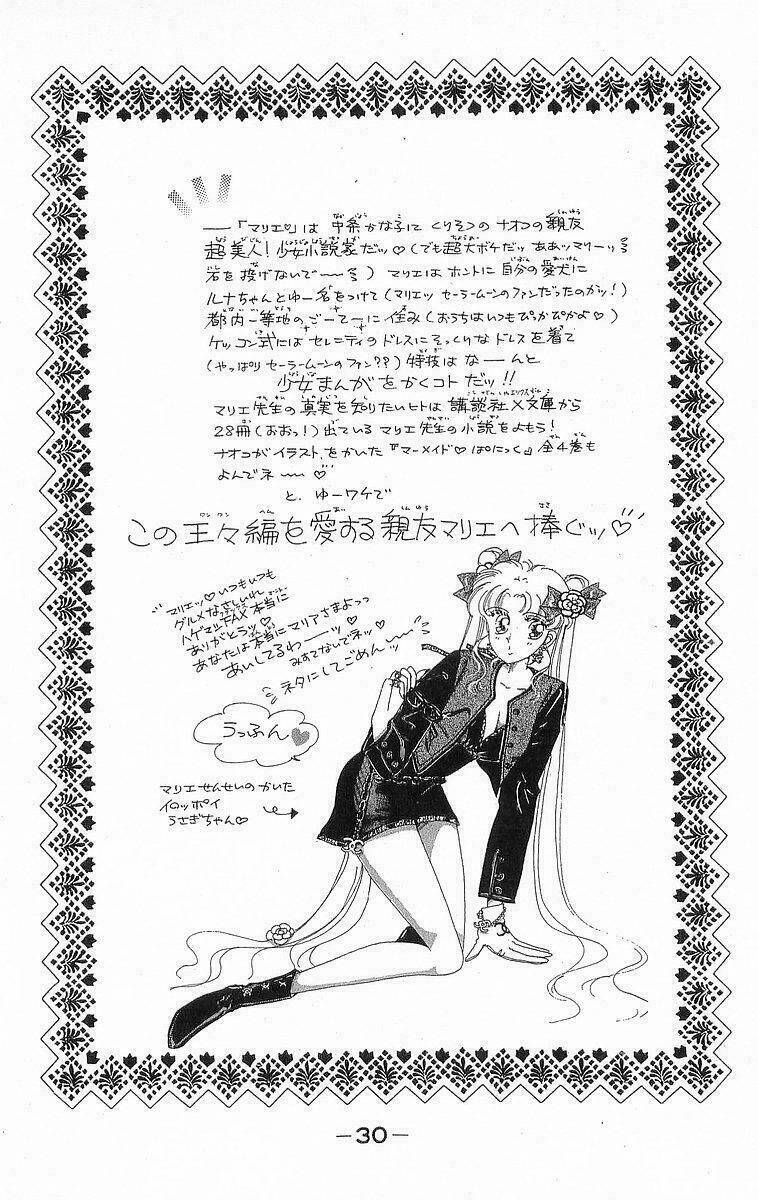 ――「マリエ」は 中条かな子に くりそつの ナオコの親友
超美人! 少女小説家だッ♡(でも超大ボケだッ ああッマリーッ
岩を投げないで〜〜) マリエは ホントに 自分の愛犬に
ルナちゃんとゆー名をつけて(マリエッ セーラームーンのファンだったのかッ!)
都内一等地のごーてーに住み(おうちはいつもぴかぴかよ♡)
ケッコン式には セレニティのドレスにそっくりな ドレスを着て
(やっぱり セーラームーンのファン??) 特技は なーんと
少女まんがをかくコトだッ!!
マリエ先生の真実を知りたいヒトは 講談社X文庫から
28冊(おおっ!)出ている マリエ先生の小説をよもう!
ナオコがイラストをかいた『マーメイド♡ぱにっく』全4巻も
よんでネ〜〜♡
と、ゆーワケで
この王々編を愛する親友マリエへ捧ぐッ♡
マリエッ♡いつもいつも
グルメなさしいれ
ハゲマシFAX本当に
ありがとうッ♡
あなたは本当にマリアさまよっっ
あいしてるわーーッ♡
みすてないでネッ♡
ネタにしてごめんッ
うっふん♥
マリエせんせいの かいた
イロッポイ
うさぎちゃん♡
—30—